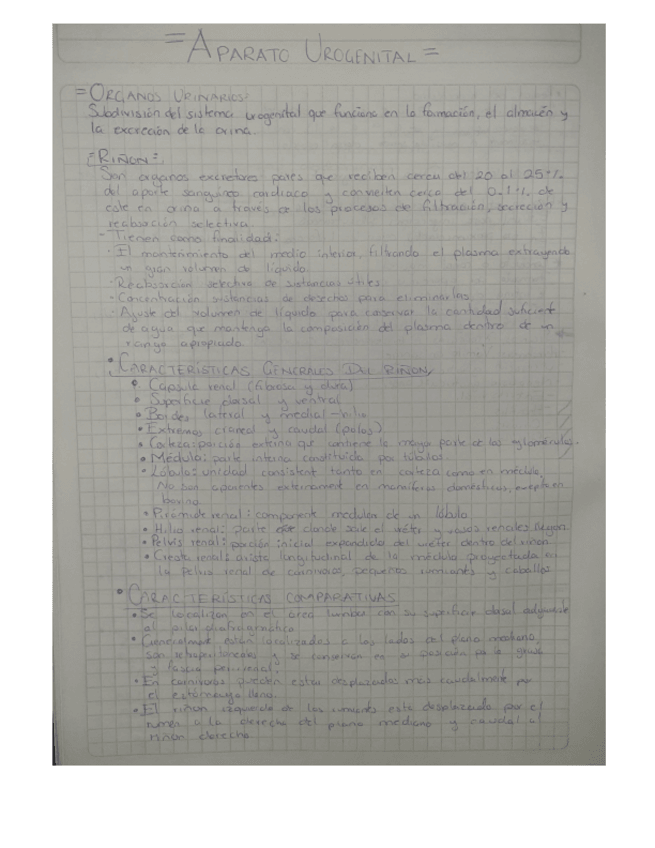 = APARATO UROGENITAL =
= ORGANOS URINARIOS:
Subdivisión del sistema urogenital que funciona en la formación, el almacén y
la excreción de la orina.
= RIÑON: =
Son organos excretores pares que reciben cerca del 20 al 25%
del aporte sanguineo cardiaco y convierten cerca del 0.1% de
este en orina a través de los procesos de filtración, secreción y
reabsorción selectiva.
- Tienen como finalidad:
· El mantenimiento del medio interior, filtrando el plasma extrayendo
un gran volumen de líquido.
· Reabsorción selectiva de sustancias útiles.
· Concentración sustancias de desechos para eliminarlas
· Ajuste del volumen de líquido para conservar la cantidad suficiente
de agua que mantenga la composición del plasma dentro de un
rango apropiado.
• CARACTERÍSTICAS GENERALES DEL RIÑON
• Capsula renal (fibrosa y dura)
• Superficie dorsal y ventral
• Bordes lateral y medial - hilio
• Extremos craneal y caudal (polos)
• Corteza: porción externa que contiene la mayor parte de los glomérulos.
• Médula: parte interna constituida por túbulos.
• Lóbulo: unidad consistent tanto en corteza como en médula,
No son aparentes externament en mamíferos domésticos, excepto en
bovino
• Pirámide renal: component medular de un lóbulo
• Hilio renal: parte donde sale el uréter y vasos renales llegan
• Pelvis renal: porción inicial expandida del uréter dentro del riñon
• Cresta renal: arista longitudinal de la médula proyectada en
la pelvis renal de carnívoros, pequeños rumiantes y caballos
• CARACTERÍSTICAS COMPARATIVAS
• Se localizan en el área lumbar con su superficie dorsal adyacente
al pilar diafragmático
• Generalmente están localizados a los lados del plano mediano,
son retroperitoneales y se conservan en su posición por la grasa
y fascia perirrenal.
• En carnívoros pueden estar desplazados más caudalmente por
el estómago lleno.
• El riñon izquierdo de los rumiantes esta desplazado por el
rumen a la derecha del plano mediano y caudal al
riñon derecho